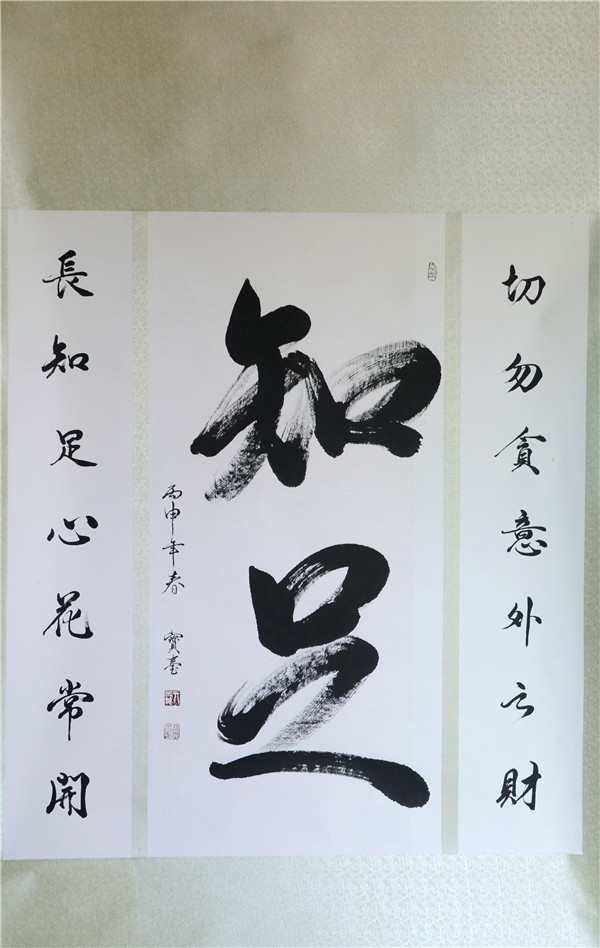 切勿貪意外之財
知足
丙申年春 寶臺
長知足心花常開